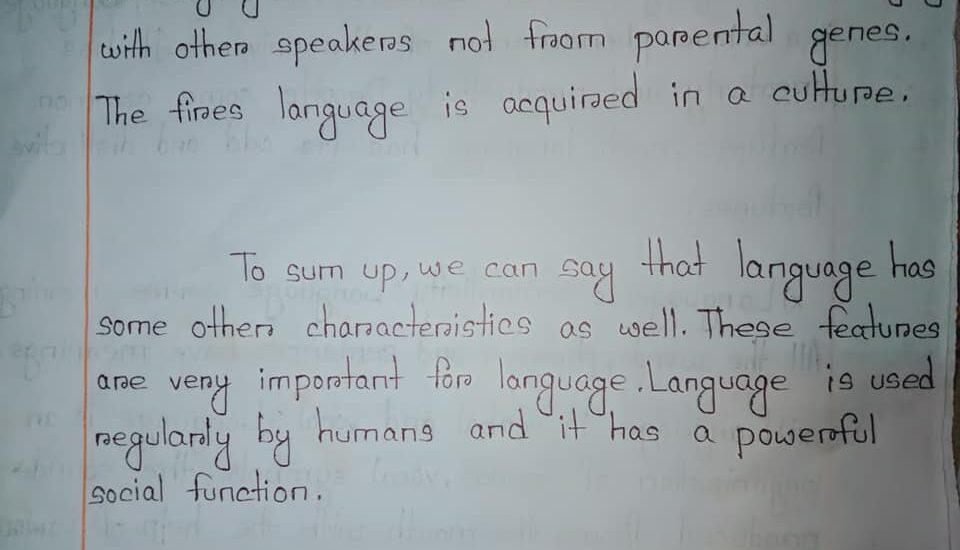 with other speakers not from parental genes.
The fires language is acquired in a culture.
To sum up, we can say that language has
some other characteristics as well. These features
are very important for language. Language is used
regularly by humans and it has a powerful
social function.